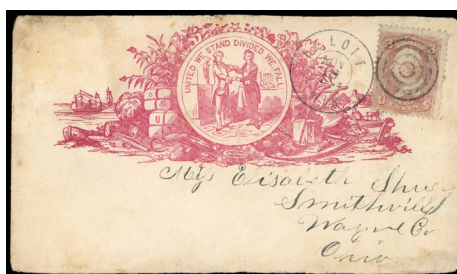 UNITED WE STAND DIVIDED WE FALL
LOIT
JAN
WIS
Miss Elisabeth
Smithville
Wayne Co
Ohio